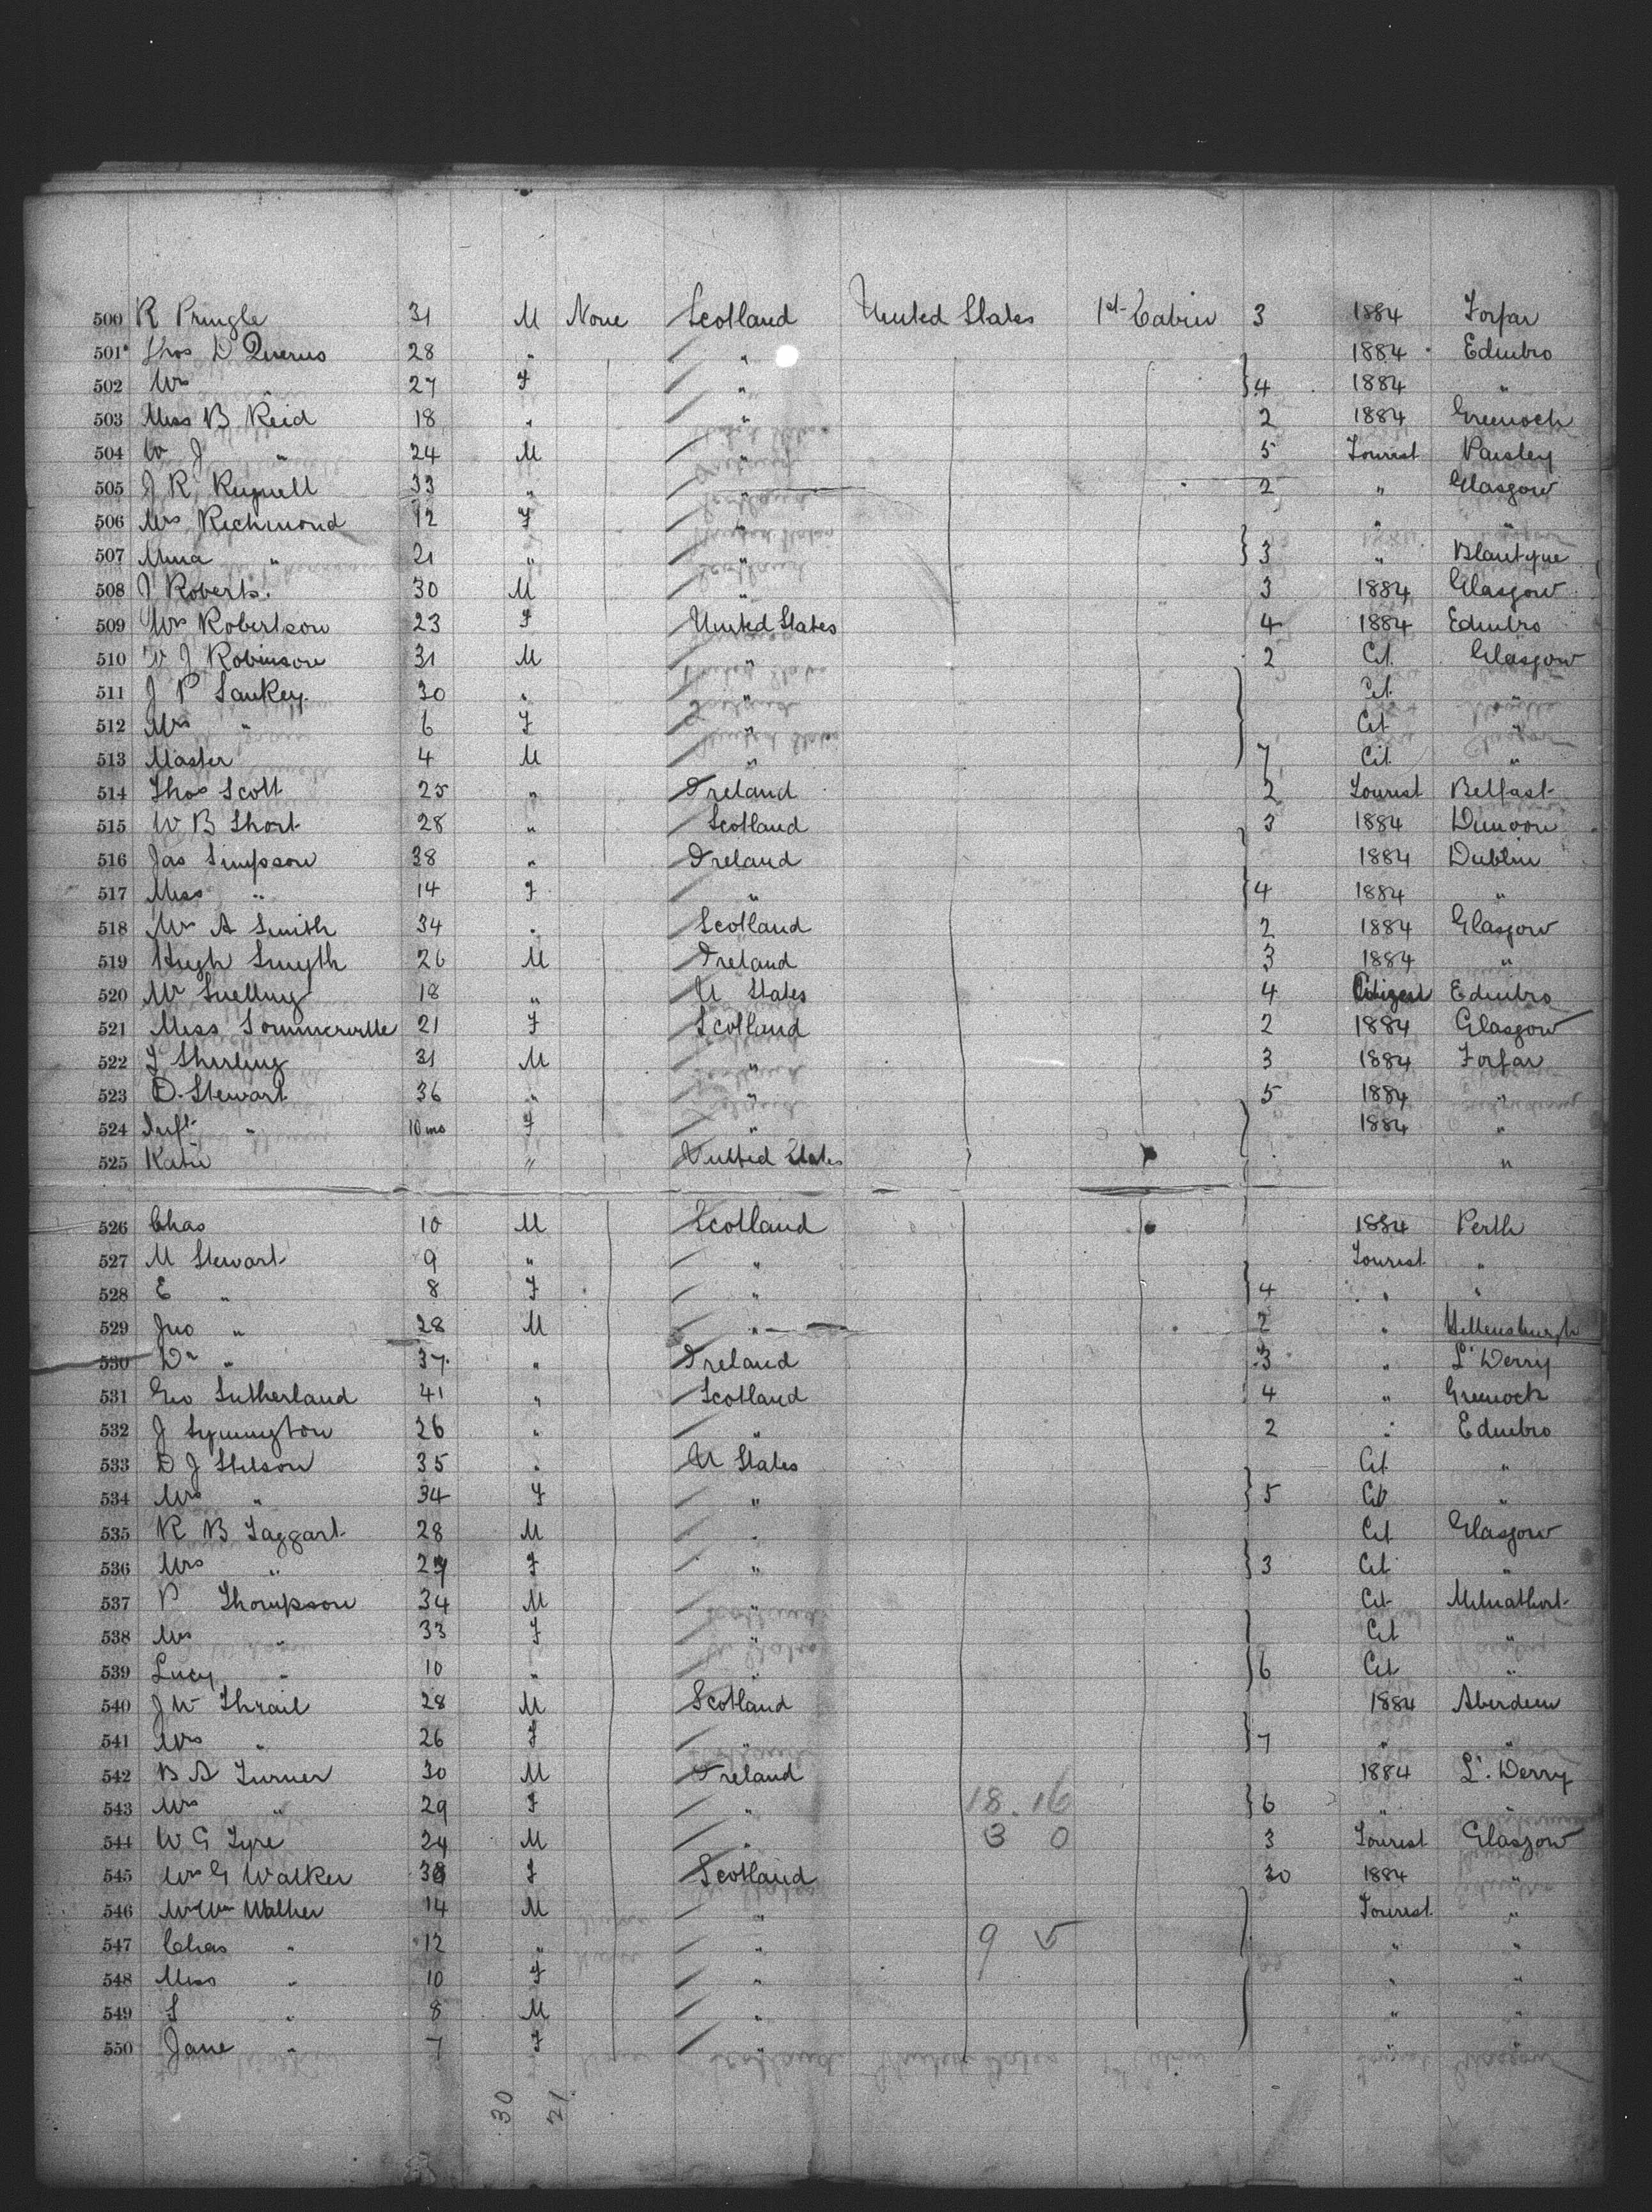 500 R Pringle 31 M None Scotland United States 1st Cabin 3 1884 Forfar
501 Thos D 28 " " 1884 Edinbro
502 Mrs " 27 F " } 4 1884 "
503 Miss B Reid 18 " " 2 1884 Greenock
504 W J " 24 M " 5 Tourist Paisley
505 J R 33 " " 2 " Glasgow
506 Mrs Richmond 12 F " " "
507 Mina " 21 " " } 3 " Blantyre
508 J Roberts. 30 M " 3 1884 Glasgow
509 Mrs Robertson 23 F United States 4 1884 Edinbro
510 W J Robinson 31 M " 2 Cit. Glasgow
511 J P Sankey. 30 " " Cit. "
512 Mrs " 6 F " Cit "
513 Master 4 M " } 7 Cit "
514 Thos Scott 25 " Ireland 2 Tourist Belfast
515 W B Short 28 " Scotland 3 1884 Dunoon
516 Jas Simpson 38 " Ireland 1884 Dublin
517 Miss " 14 F " } 4 1884 "
518 Mrs A Smith 34 " Scotland 2 1884 Glasgow
519 Hugh Smyth 26 M Ireland 3 1884 "
520 Mr Snelling 18 " U States 4 Edinbro
521 Miss Sommerville 21 F Scotland 2 1884 Glasgow
522 J Shirling 31 M " 3 1884 Forfar
523 D. Stewart 36 " " 5 1884 "
524 Inft " 10 mo F " 1884 "
525 Katie " United States "
526 Chas 10 M Scotland 1884 Perth
527 M Stewart 9 " " Tourist "
528 E " 8 F " } 4 " "
529 Jno " 28 M " 2 " Hellensburgh
530 Dr " 37 " Ireland 3 " L' Derry
531 Geo Sutherland 41 " Scotland 4 " Greenock
532 J Symington 26 " " 2 " Edinbro
533 D J Stilson 35 " U States Cit "
534 Mrs " 34 F " } 5 Cit "
535 R B Taggart 28 M " Cit Glasgow
536 Mrs " F " } 3 Cit "
537 P Thompson 34 M " Cit Milnathort
538 Mrs " 33 F " Cit "
539 Lucy " 10 " " } 6 Cit "
540 J W Thrail 28 M Scotland 1884 Aberdeen
541 Mrs " 26 F " } 7 " "
542 B A Turner 30 M Ireland 1884 L'. Derry
543 Mrs " 29 F " 18.16 } 6 " "
544 W G Tyre 24 M " 3 0 3 Tourist Glasgow
545 Mrs G Walker F Scotland 30 1884 "
546 Mr Wm Walker 14 M " Tourist "
547 Chas " 12 " " 9 5 " "
548 Miss " 10 F " " "
549 S " 8 M " " "
550 Jane " 7 F " " "
30 21